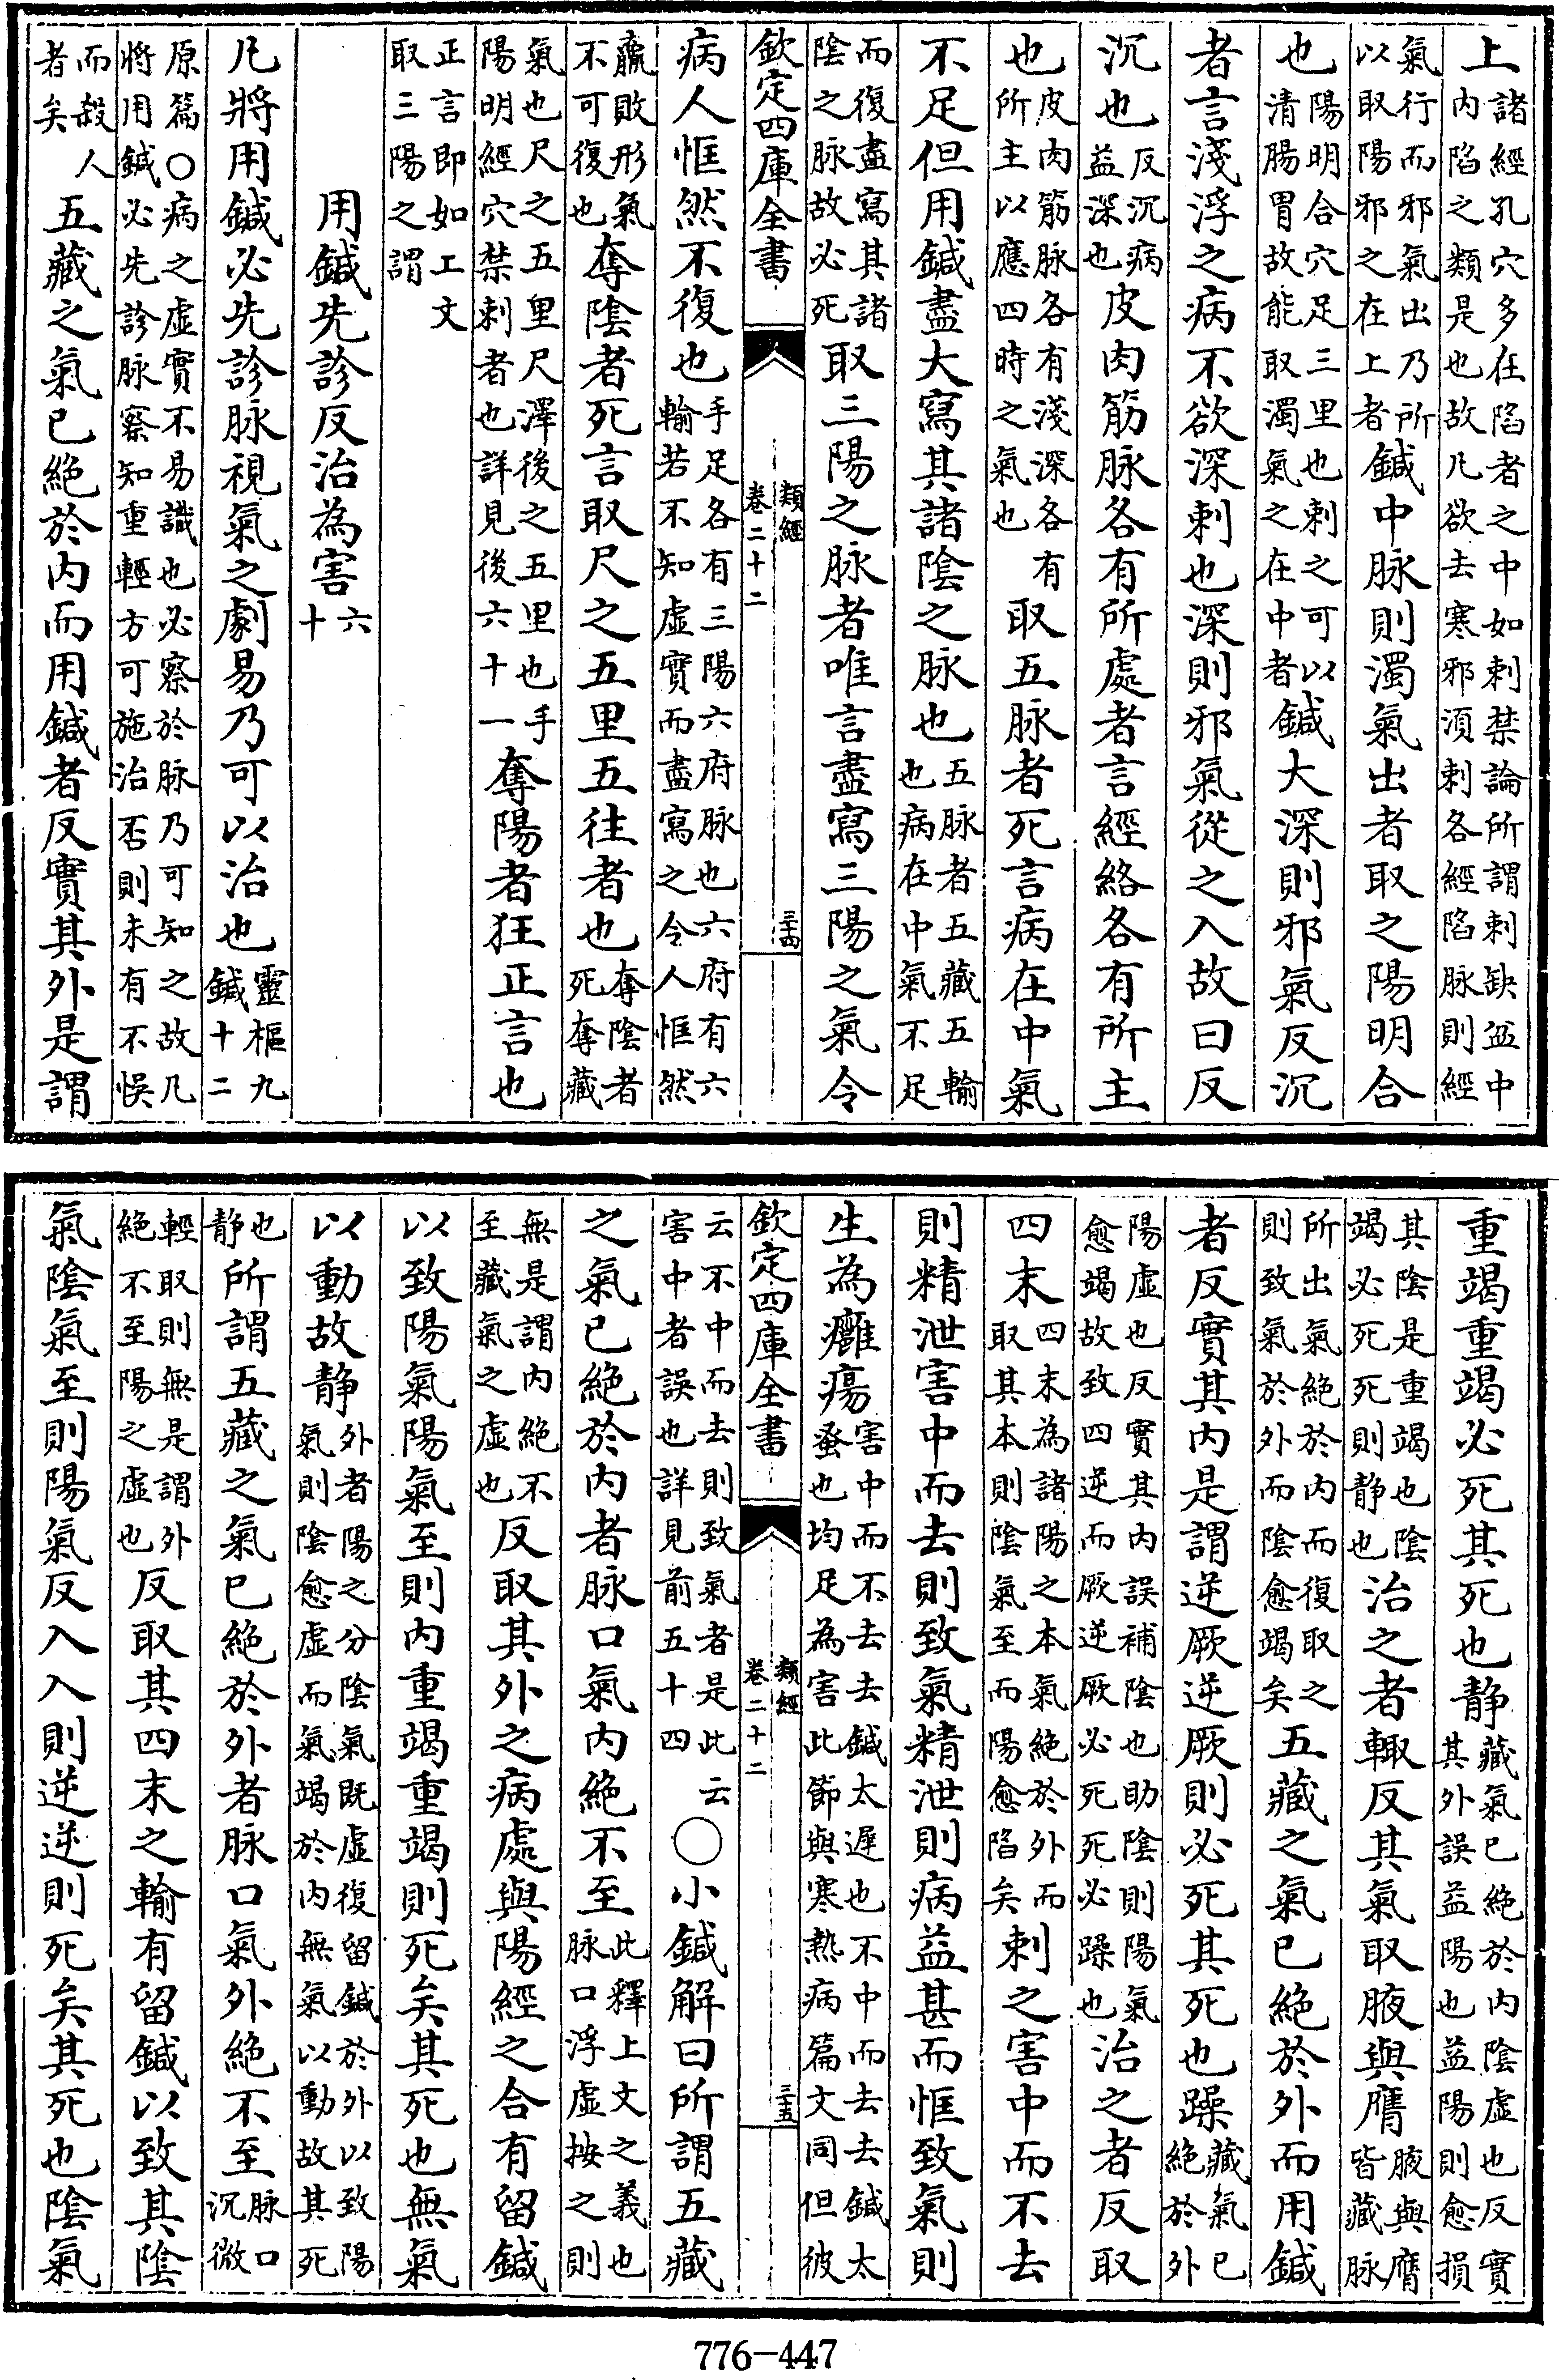 上諸經孔穴多在陷者之中如刺禁論所謂刺缺盆中内陷之類是也故凡欲去寒邪須刺各經陷脉則經
氣行而邪氣出乃所以取陽邪之在上者鍼中脉則濁氣出者取之陽明合
也陽明合穴足三里也刺之可以清腸胃故能取濁氣之在中者鍼大深則邪氣反沉
者言淺浮之病不欲深刺也深則邪氣從之入故曰反
沉也反沉病益深也皮肉筋脉各有所處者言經絡各有所主
也皮肉筋脉各有淺深各有所主以應四時之氣也取五脉者死言病在中氣
不足但用鍼盡大寫其諸陰之脉也五脉者五藏五輸也病在中氣不足
而復盡寫其諸陰之脉故必死取三陽之脉者唯言盡寫三陽之氣令
欽定四庫全書
類經
卷二十二
三四
病人恇然不復也手足各有三陽六府脉也六府有六輸若不知虛實而盡寫之令人恇然
羸敗形氣不可復也奪陰者死言取尺之五里五往者也奪陰者死奪藏
氣也尺之五里尺澤後之五里也手陽明經穴禁刺者也詳見後六十一奪陽者狂正言也
正言即如上文取三陽之謂
用鍼先診反治為害六十
凡將用鍼必先診脉視氣之劇易乃可以治也靈樞九鍼十二
原篇○病之虛實不易識也必察於脉乃可知之故凡將用鍼必先診脉察知重輕方可施治否則未有不悞
而殺人者矣五藏之氣已絶於内而用鍼者反實其外是謂
重竭重竭必死其死也静藏氣已絶於内陰虛也反實其外誤益陽也益陽則愈損
其陰是重竭也陰竭必死死則静也治之者輙反其氣取腋與膺腋與膺皆藏脉
所出氣絶於内而復取之則致氣於外而陰愈竭矣五藏之氣已絶於外而用鍼
者反實其内是謂逆厥逆厥則必死其死也躁藏氣已絶於外
陽虛也反實其内誤補陰也助陰則陽氣愈竭故致四逆而厥逆厥必死死必躁也治之者反取
四末四末為諸陽之本氣絶於外而取其本則陰氣至而陽愈陷矣刺之害中而不去
則精泄害中而去則致氣精泄則病益甚而恇致氣則
生為癰瘍害中而不去去鍼太遲也不中而去去鍼太蚤也均足為害此節與寒熱病篇文同但彼
欽定四庫全書
類經
卷二十二
三五
云不中而去則致氣者是此云害中者誤也詳見前五十四○小鍼解曰所謂五藏
之氣已絶於内者脉口氣内絶不至此釋上文之義也脉口浮虛按之則
無是謂内絶不至藏氣之虛也反取其外之病處與陽經之合有留鍼
以致陽氣陽氣至則内重竭重竭則死矣其死也無氣
以動故静外者陽之分陰氣既虛復留鍼於外以致陽氣則陰愈虛而氣竭於内無氣以動故其死
也静所謂五藏之氣已絶於外者脉口氣外絶不至脉口沉微
輕取則無是謂外絶不至陽之虛也反取其四末之輸有留鍼以致其陰
氣陰氣至則陽氣反入入則逆逆則死矣其死也陰氣
776-447